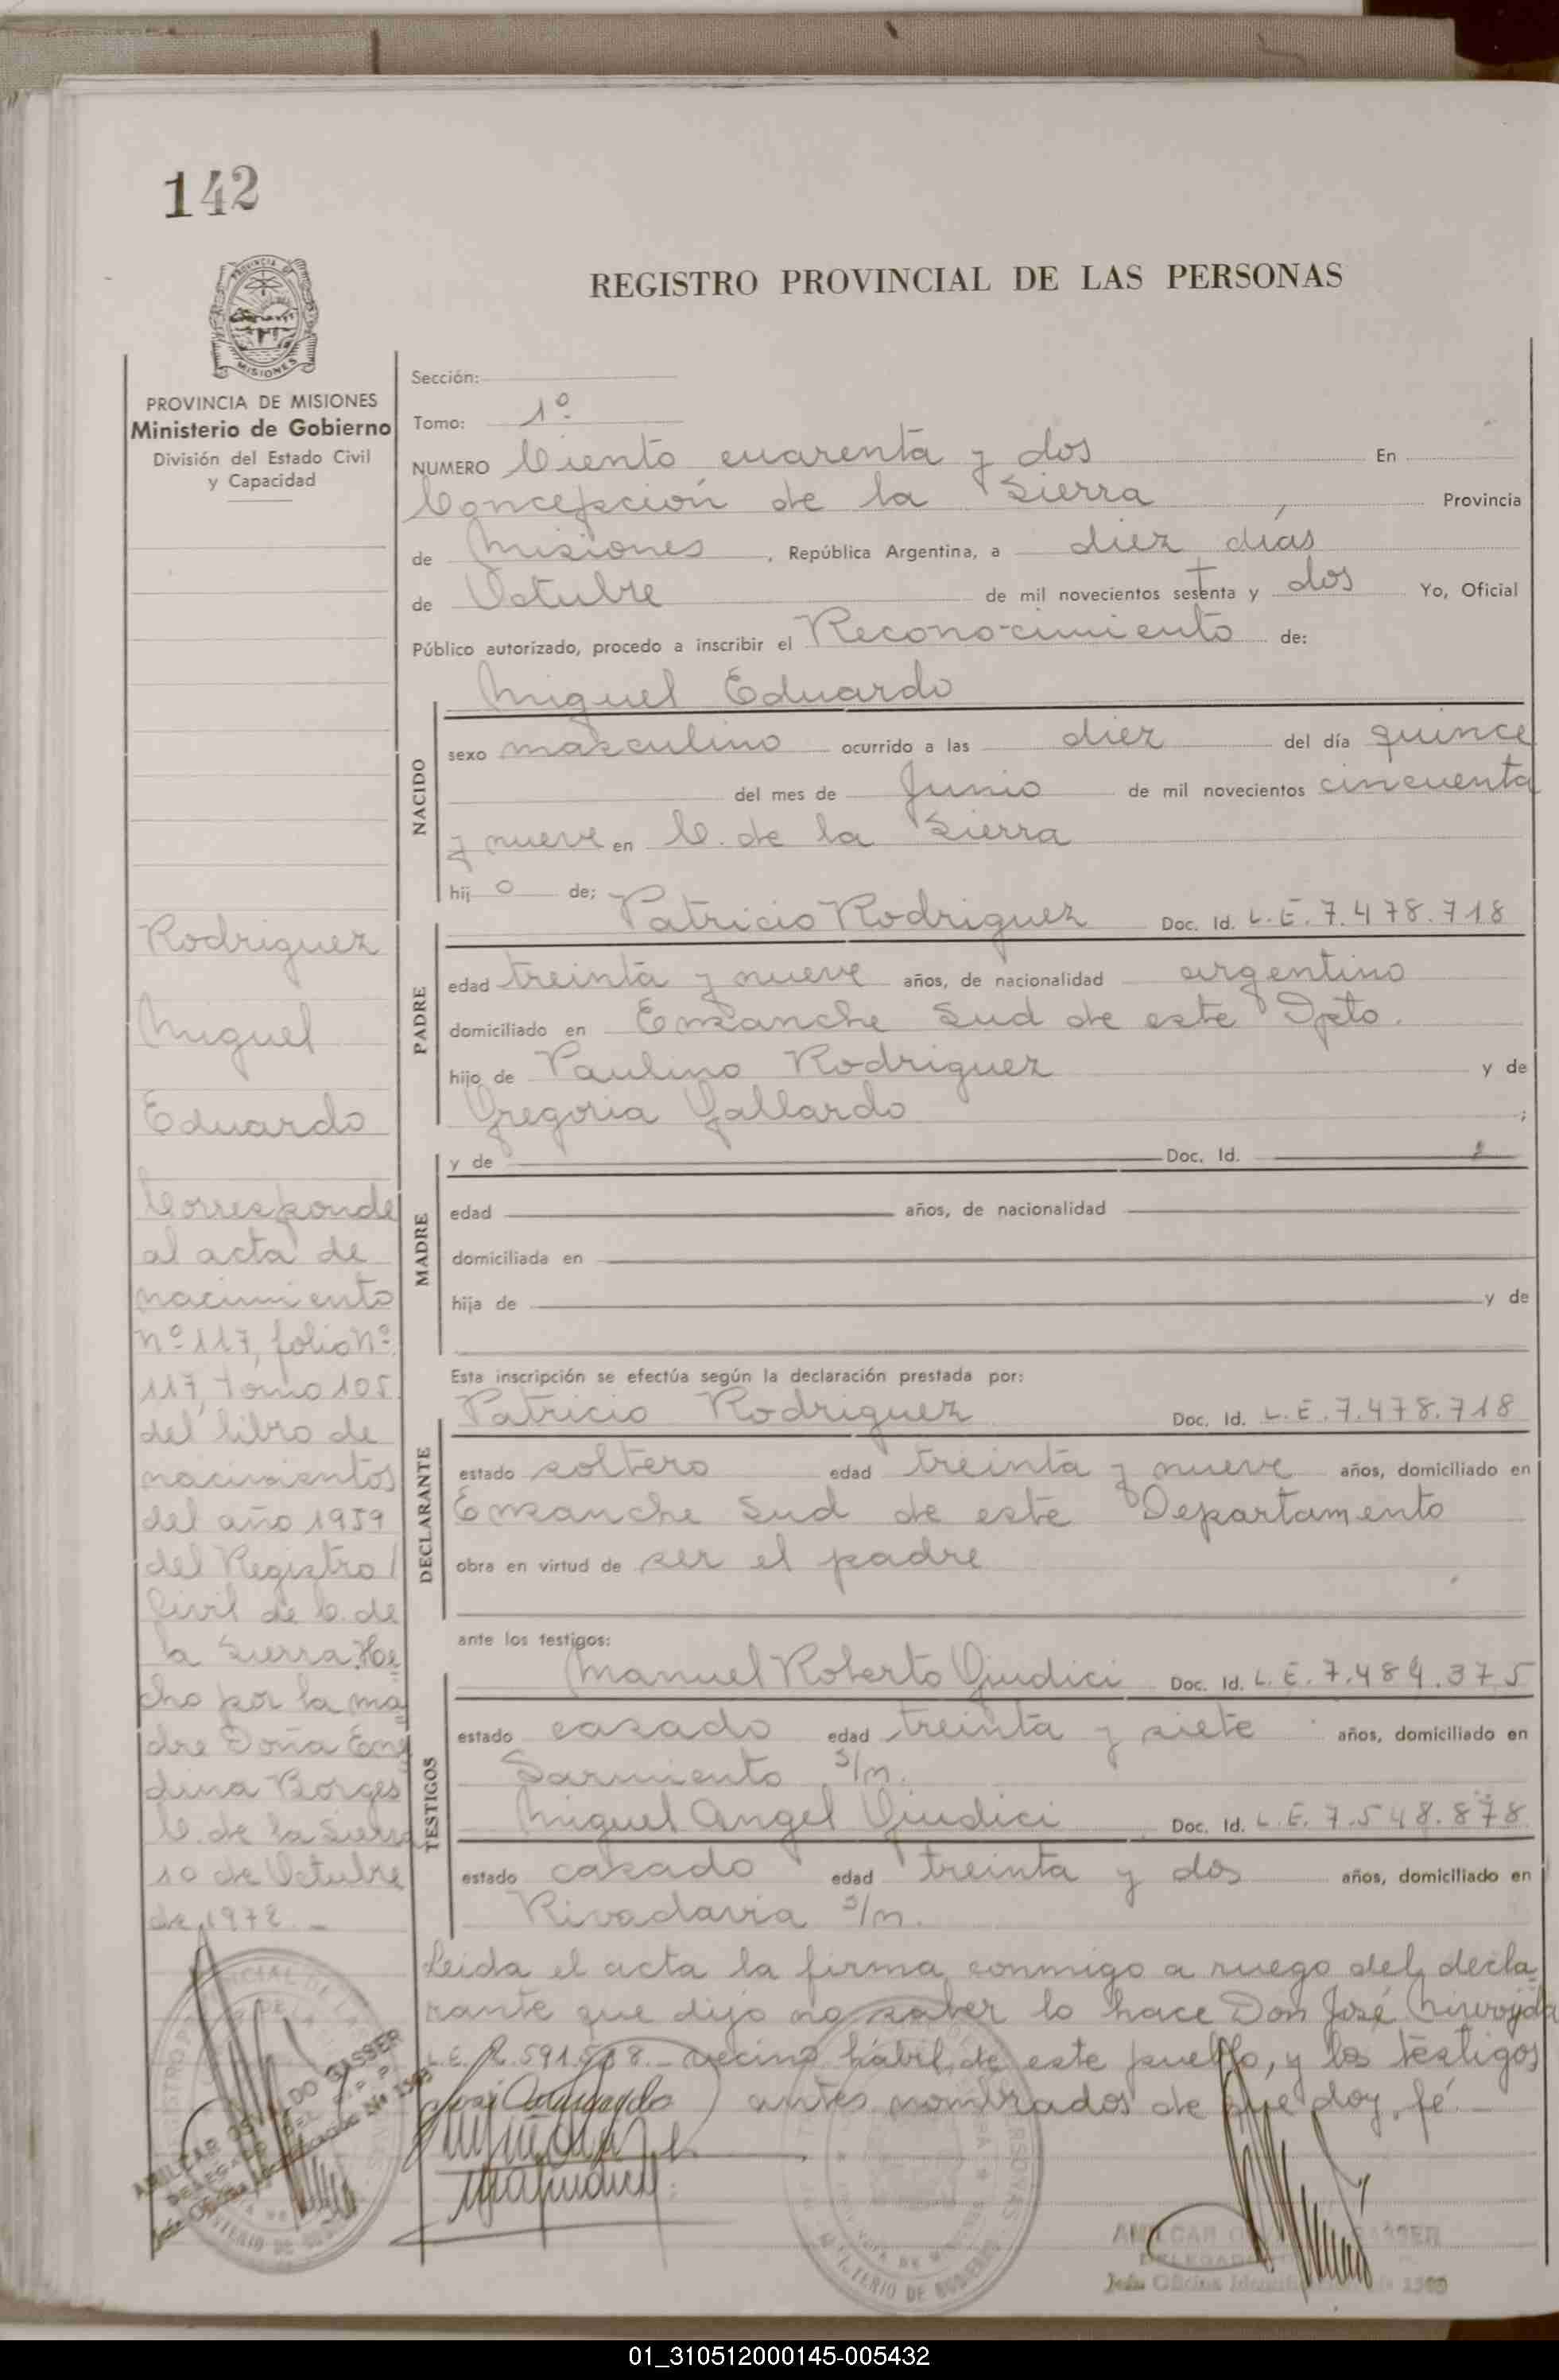 142
REGISTRO PROVINCIAL DE LAS PERSONAS
PROVINCIA DE MISIONES
Ministerio de Gobierno
División del Estado Civil
y Capacidad
Sección:
Tomo: 1º
NUMERO Ciento cuarenta y dos En
Concepción de la Sierra Provincia
de Misiones, República Argentina, a diez días
de Octubre de mil novecientos setenta y dos Yo, Oficial
Público autorizado, procedo a inscribir el Reconocimiento de:
Miguel Eduardo
NACIDO
sexo masculino ocurrido a las diez del día quince
del mes de Junio de mil novecientos cincuenta
y nueve en C. de la Sierra
hij o de; Patricio Rodriguez Doc. Id. L.E. 7.478.718
PADRE
edad treinta y nueve años, de nacionalidad argentino
domiciliado en Ensanche Sud de este Dpto.
hijo de Paulino Rodriguez y de
Gregoria Gallardo ;
MADRE
y de Doc. Id.
edad años, de nacionalidad
domiciliada en
hija de y de
Esta inscripción se efectúa según la declaración prestada por:
Patricio Rodriguez Doc. Id. L.E. 7.478.718
DECLARANTE
estado soltero edad treinta y nueve años, domiciliado en
Ensanche Sud de este Departamento
obra en virtud de ser el padre
ante los testigos:
Manuel Roberto Giudici Doc. Id. L.E. 7.484.375
TESTIGOS
estado casado edad treinta y siete años, domiciliado en
Sarmiento s/n.
Miguel Angel Giudici Doc. Id. L.E. 7.548.878
estado casado edad treinta y dos años, domiciliado en
Rivadavia s/n.
Leida el acta la firma conmigo a ruego del decla
rante que dijo no saber lo hace Don José
L.E. vecino hábil de este pueblo, y los testigos
antes nombrados de que doy fé.
Rodriguez
Miguel
Eduardo
Corresponde
al acta de
nacimiento
nº 117, folio nº
117, tomo 105
del libro de
nacimientos
del año 1959
del Registro
Civil de C. de
la Sierra. He
cho por la ma
dre Doña
dina Borges
C. de la Sierra
10 de Octubre
de 1972
AMILCAR OSVALDO GASSER
DELEGADO DEL R.P.P.
MINISTERIO DE GOBIERNO
01_310512000145-005432